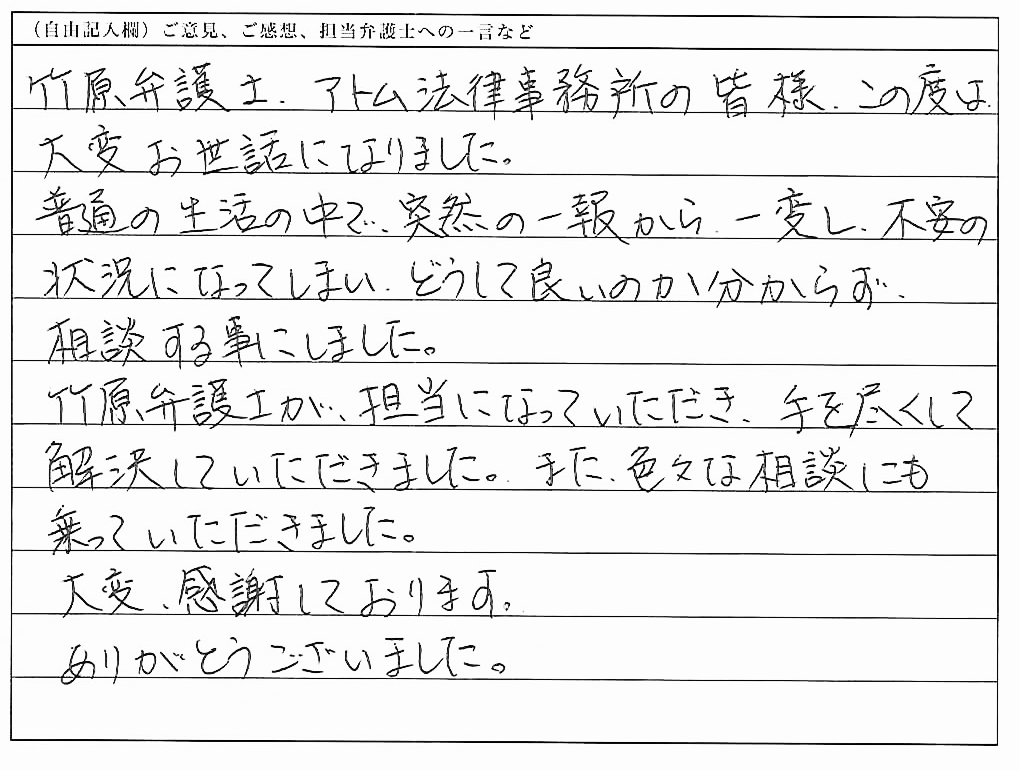 （自由記入欄）ご意見、ご感想、担当弁護士への一言など
竹原弁護士、アトム法律事務所の皆様、この度は
大変お世話になりました。
普通の生活の中で、突然の一報から、一変し、不安の
状況になってしまい、どうして良いのか分からず、
相談する事にしました。
竹原弁護士が、担当になっていただき、手を尽くして
解決していただきました。また、色々な相談にも
乗っていただきました。
大変、感謝しております。
ありがとうございました。